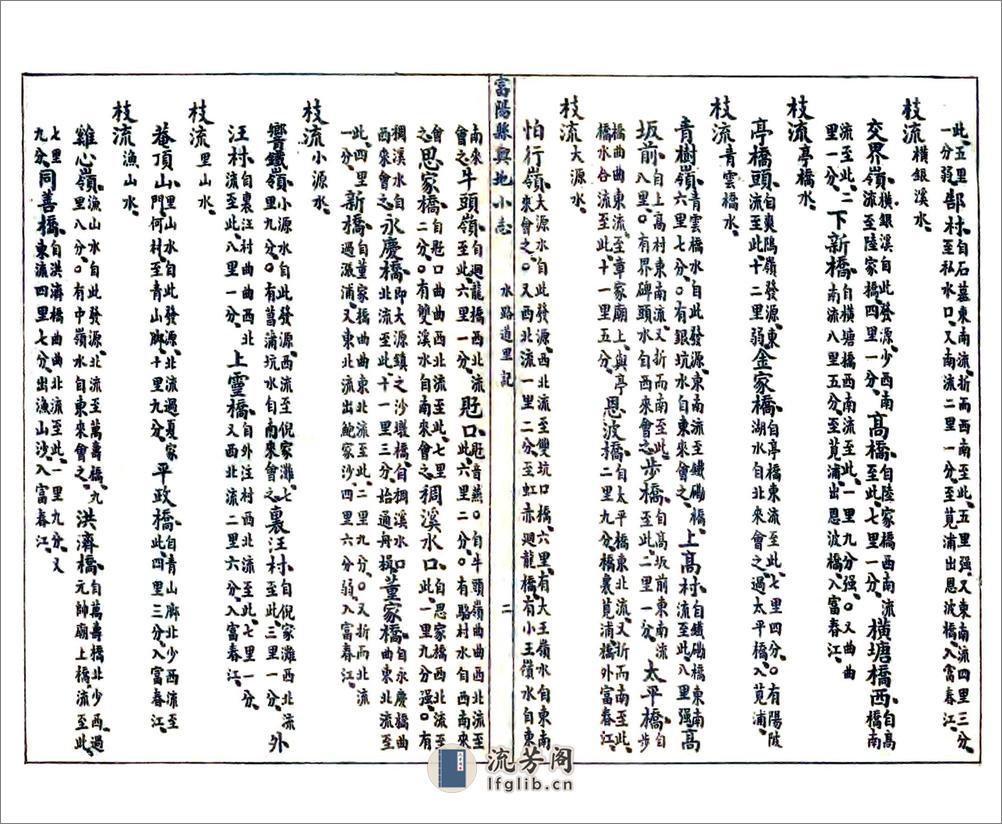 此、五里一分弱、鄗村、自石墓東南流、折而西南至此、五里强、又東南流四里三分、至私水口、又南流二里一分至莧浦出恩波橋、入富春江、
枝流橫銀溪水、
交界嶺、橫銀溪自此發源、少西南流至陸家橋、四里一分、高橋、自陸家橋西南流至此、七里一分、橫塘橋西、自高橋南
流至此、二里一分、下新橋、自橫塘橋西南流至此、一里九分强、○又曲曲南流八里五分至莧浦出恩波橋、入富春江、
枝流亭橋水、
亭橋頭、自爽陽嶺發源、東流至此、十二里弱、金家橋、自亭橋東流至此、七里四分、○有陽陂湖水自北來會之、過太平橋、入莧浦、
枝流青雲橋水、
青樹嶺、青雲橋水自此發源、東南流至鐵砌橋、六里七分、○有銀坑水自東來會之、上高村、自鐵砌橋東南流至此、八里强、高
坂前、自上高村東南流、又折而南至此、八里、○有界碑頭水自西來會之、步橋、自高坂前東南流至此、二里一分、太平橋、自步
橋曲曲東流、至章家廟上、與亭橋水各流至此、十一里五分、恩波橋、自太平橋東北流、又折而南至此、二里九分、橋裏莧浦、橋外富春江、
枝流大源水、
怕行嶺、大源水自此發源、西北流至雙坑口橋、六里、有大王嶺水自東南來會之、○又西北流一里二分至虹赤廻龍橋、有小王嶺水自東
富陽縣輿地小志 水路道里記 二
南來會之、牛頭嶺、自廻龍橋西北流至此、六里一分、兝口、兝音燕、○自牛頭嶺曲曲西北流至此、六里二分、○有駱村水自西南來
會之、思家橋、自兝口曲曲西北流至此、七里二分、○有雙溪水自南來會之、稠溪水口、自思家橋西北流至此、一里九分强、○有
稠溪水自東來會之、永慶橋、即大源鎮之沙墩橋、自稠溪水口北流至此、十一里三分、始通舟楫、董家橋、自永慶橋曲曲東北流至
此、四里一分、新橋、自董家橋曲曲東北流至此、二里九分、○又折而北流過漲浦、又東北流出鮑家沙、四里六分弱、入富春江、
枝流小源水、
響鐵嶺、小源水自此發源、西流至倪家灘、七里九分、○有菖蒲坑水自南來會之、裏汪村、自倪家灘西北流至此、三里一分、外
汪村、自裏汪村曲曲西北流至此、八里一分、上靈橋、自外汪村西北流至此、七里一分、又西北流二里六分、入富春江、
枝流里山水、
菴頂山、里山水自此發源、北流過夏家門、何村、至青山脚、十里九分、平政橋、自青山廊北少西流至此、四里三分、入富春江、
枝流漁山水、
雞心嶺、漁山水自此發源、北流至萬壽橋、九里八分、○有中嶺水自東來會之、洪濟橋、自萬壽橋北少西過元帥廟上橋流至此、
七里九分、同善橋、自洪濟橋曲曲北流至此、一里九分、又東流四里七分、出漁山沙、入富春江、
流芳阁
lfglib.cn